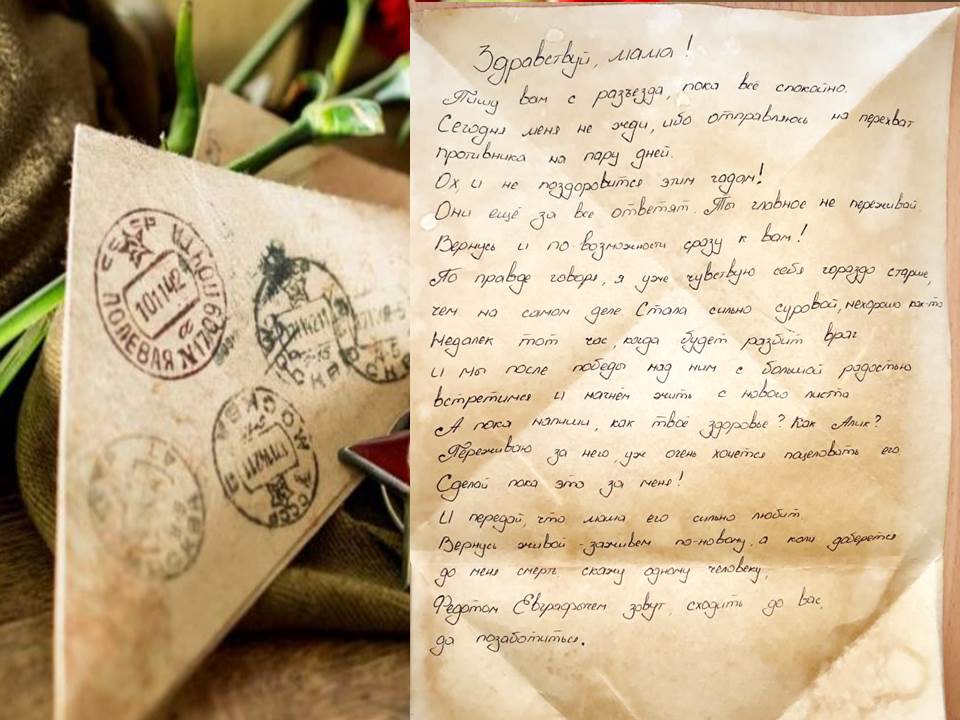 Здравствуй, мама!
Пишу вам с разъезда, пока всё спокойно.
Сегодня меня не жди, ибо отправляюсь на перехват
противника на пару дней.
Ох и не поздоровится этим гадам!
Они ещё за все ответят. Ты главное не переживай.
Вернусь и по возможности сразу к вам!
По правде говоря, я уже чувствую себя гораздо старше,
чем на самом деле. Стала сильно суровой, нехорошо как-то
Недалек тот час, когда будет разбит враг
и мы после победы над ним с большой радостью
встретимся и начнём жить с нового листа
А пока напиши, как твоё здоровье? Как Алик?
Переживаю за него, уж очень хочется поцеловать его.
Сделай пока это за меня!
И передай, что мама его сильно любит.
Вернусь живой - заживем по-новому, а коли доберется
до меня смерть скажу одному человеку,
Федотом Евграфычем зовут, сходить до вас,
да позаботиться.
ПОЛЕВАЯ ПОЧТА
10 1 1 42
МОСКВА